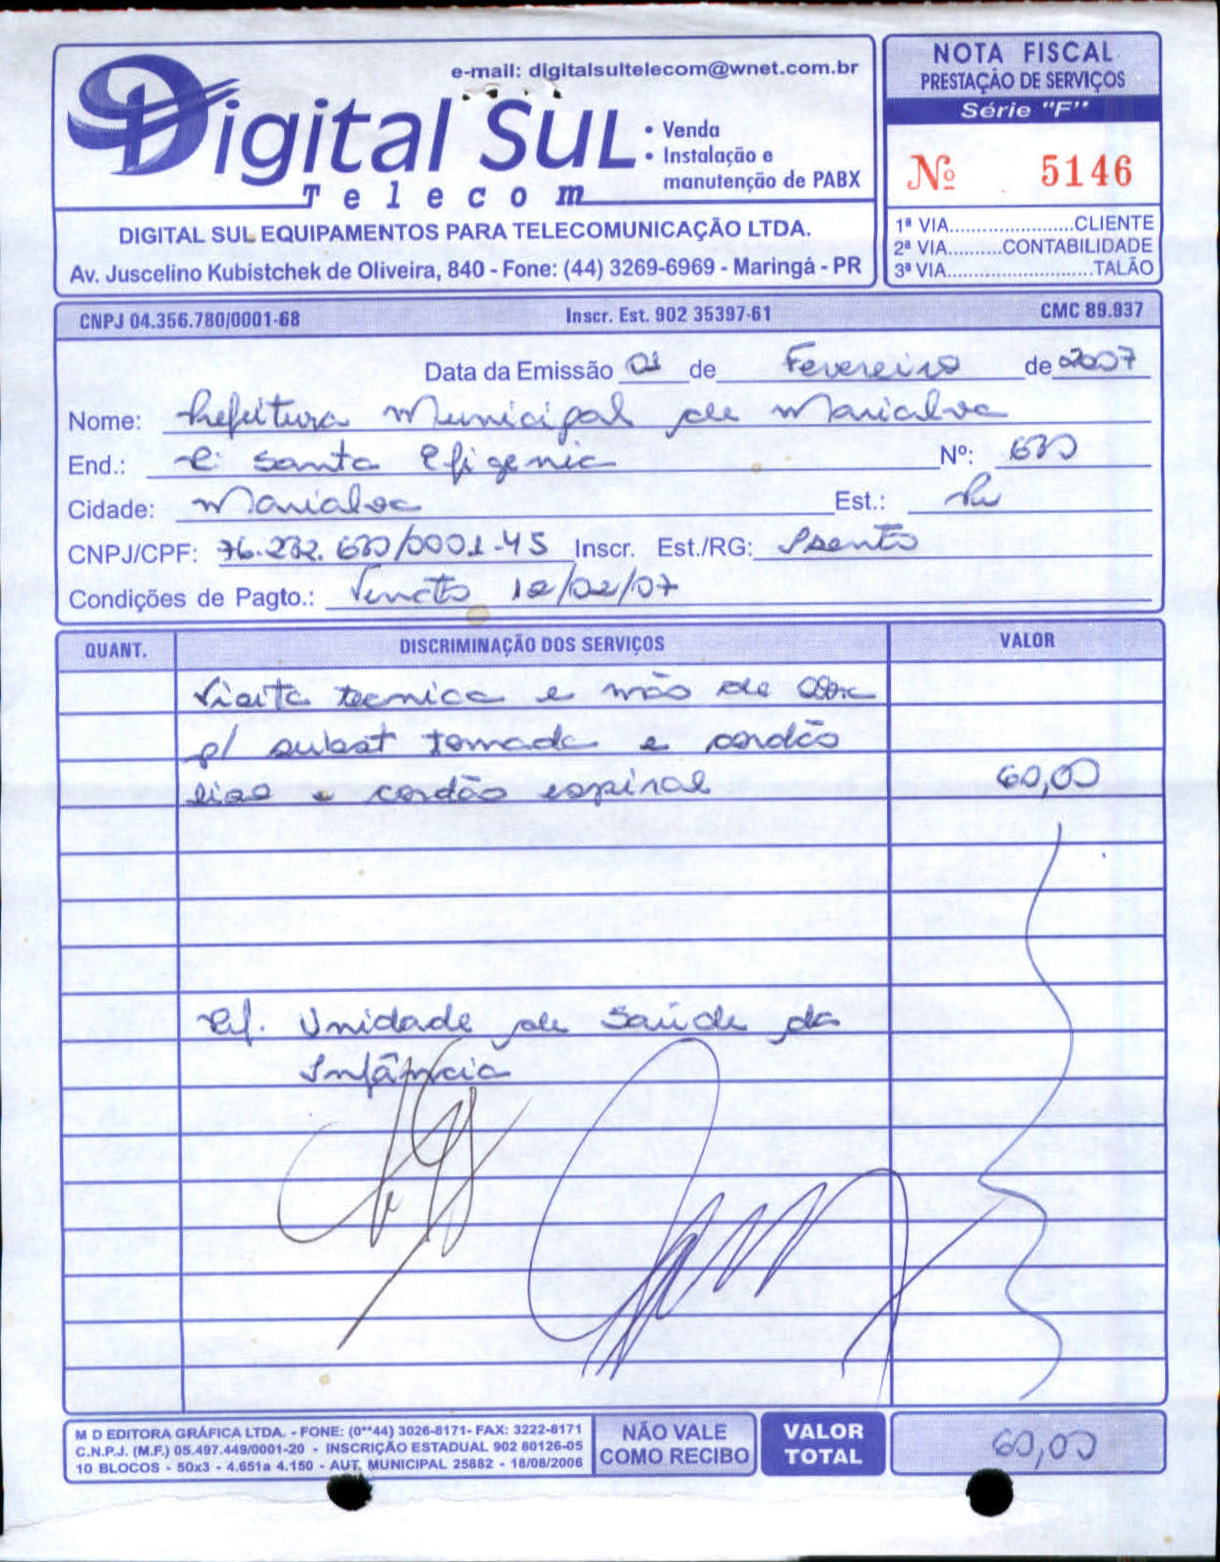 e-mail: digitalsultelecom@wnet.com.br
Digital Sul
Telecom
• Venda
• Instalação e
manutenção de PABX
DIGITAL SUL EQUIPAMENTOS PARA TELECOMUNICAÇÃO LTDA.
Av. Juscelino Kubistchek de Oliveira, 840 - Fone: (44) 3269-6969 - Maringá - PR
NOTA FISCAL
PRESTAÇÃO DE SERVIÇOS
Série "F"
Nº 5146
1ª VIA.......................CLIENTE
2ª VIA..........CONTABILIDADE
3ª VIA...........................TALÃO
CNPJ 04.356.780/0001-68 Inscr. Est. 902 35397-61 CMC 89.937
Data da Emissão de Fevereiro de 2007
Nome: Prefeitura Municipal de Marialva
End.: R: Santa Efigenia Nº: 680
Cidade: Marialva Est.: Pr
CNPJ/CPF: 76.282.680/0001-45 Inscr. Est./RG: Isento
Condições de Pagto.: Vencto 12/02/07
QUANT. DISCRIMINAÇÃO DOS SERVIÇOS VALOR
Visita tecnica e mão de Obra
p/ subst tomada e cordão
liso e cordão espiral 60,00
Ref. Unidade de Saúde da
Infância
M D EDITORA GRÁFICA LTDA. - FONE: (0**44) 3026-8171- FAX: 3222-8171
C.N.P.J. (M.F.) 05.497.449/0001-20 - INSCRIÇÃO ESTADUAL 902 80126-05
10 BLOCOS - 50x3 - 4.651a 4.150 - AUT. MUNICIPAL 25882 - 18/08/2006
NÃO VALE
COMO RECIBO
VALOR
TOTAL
60,00